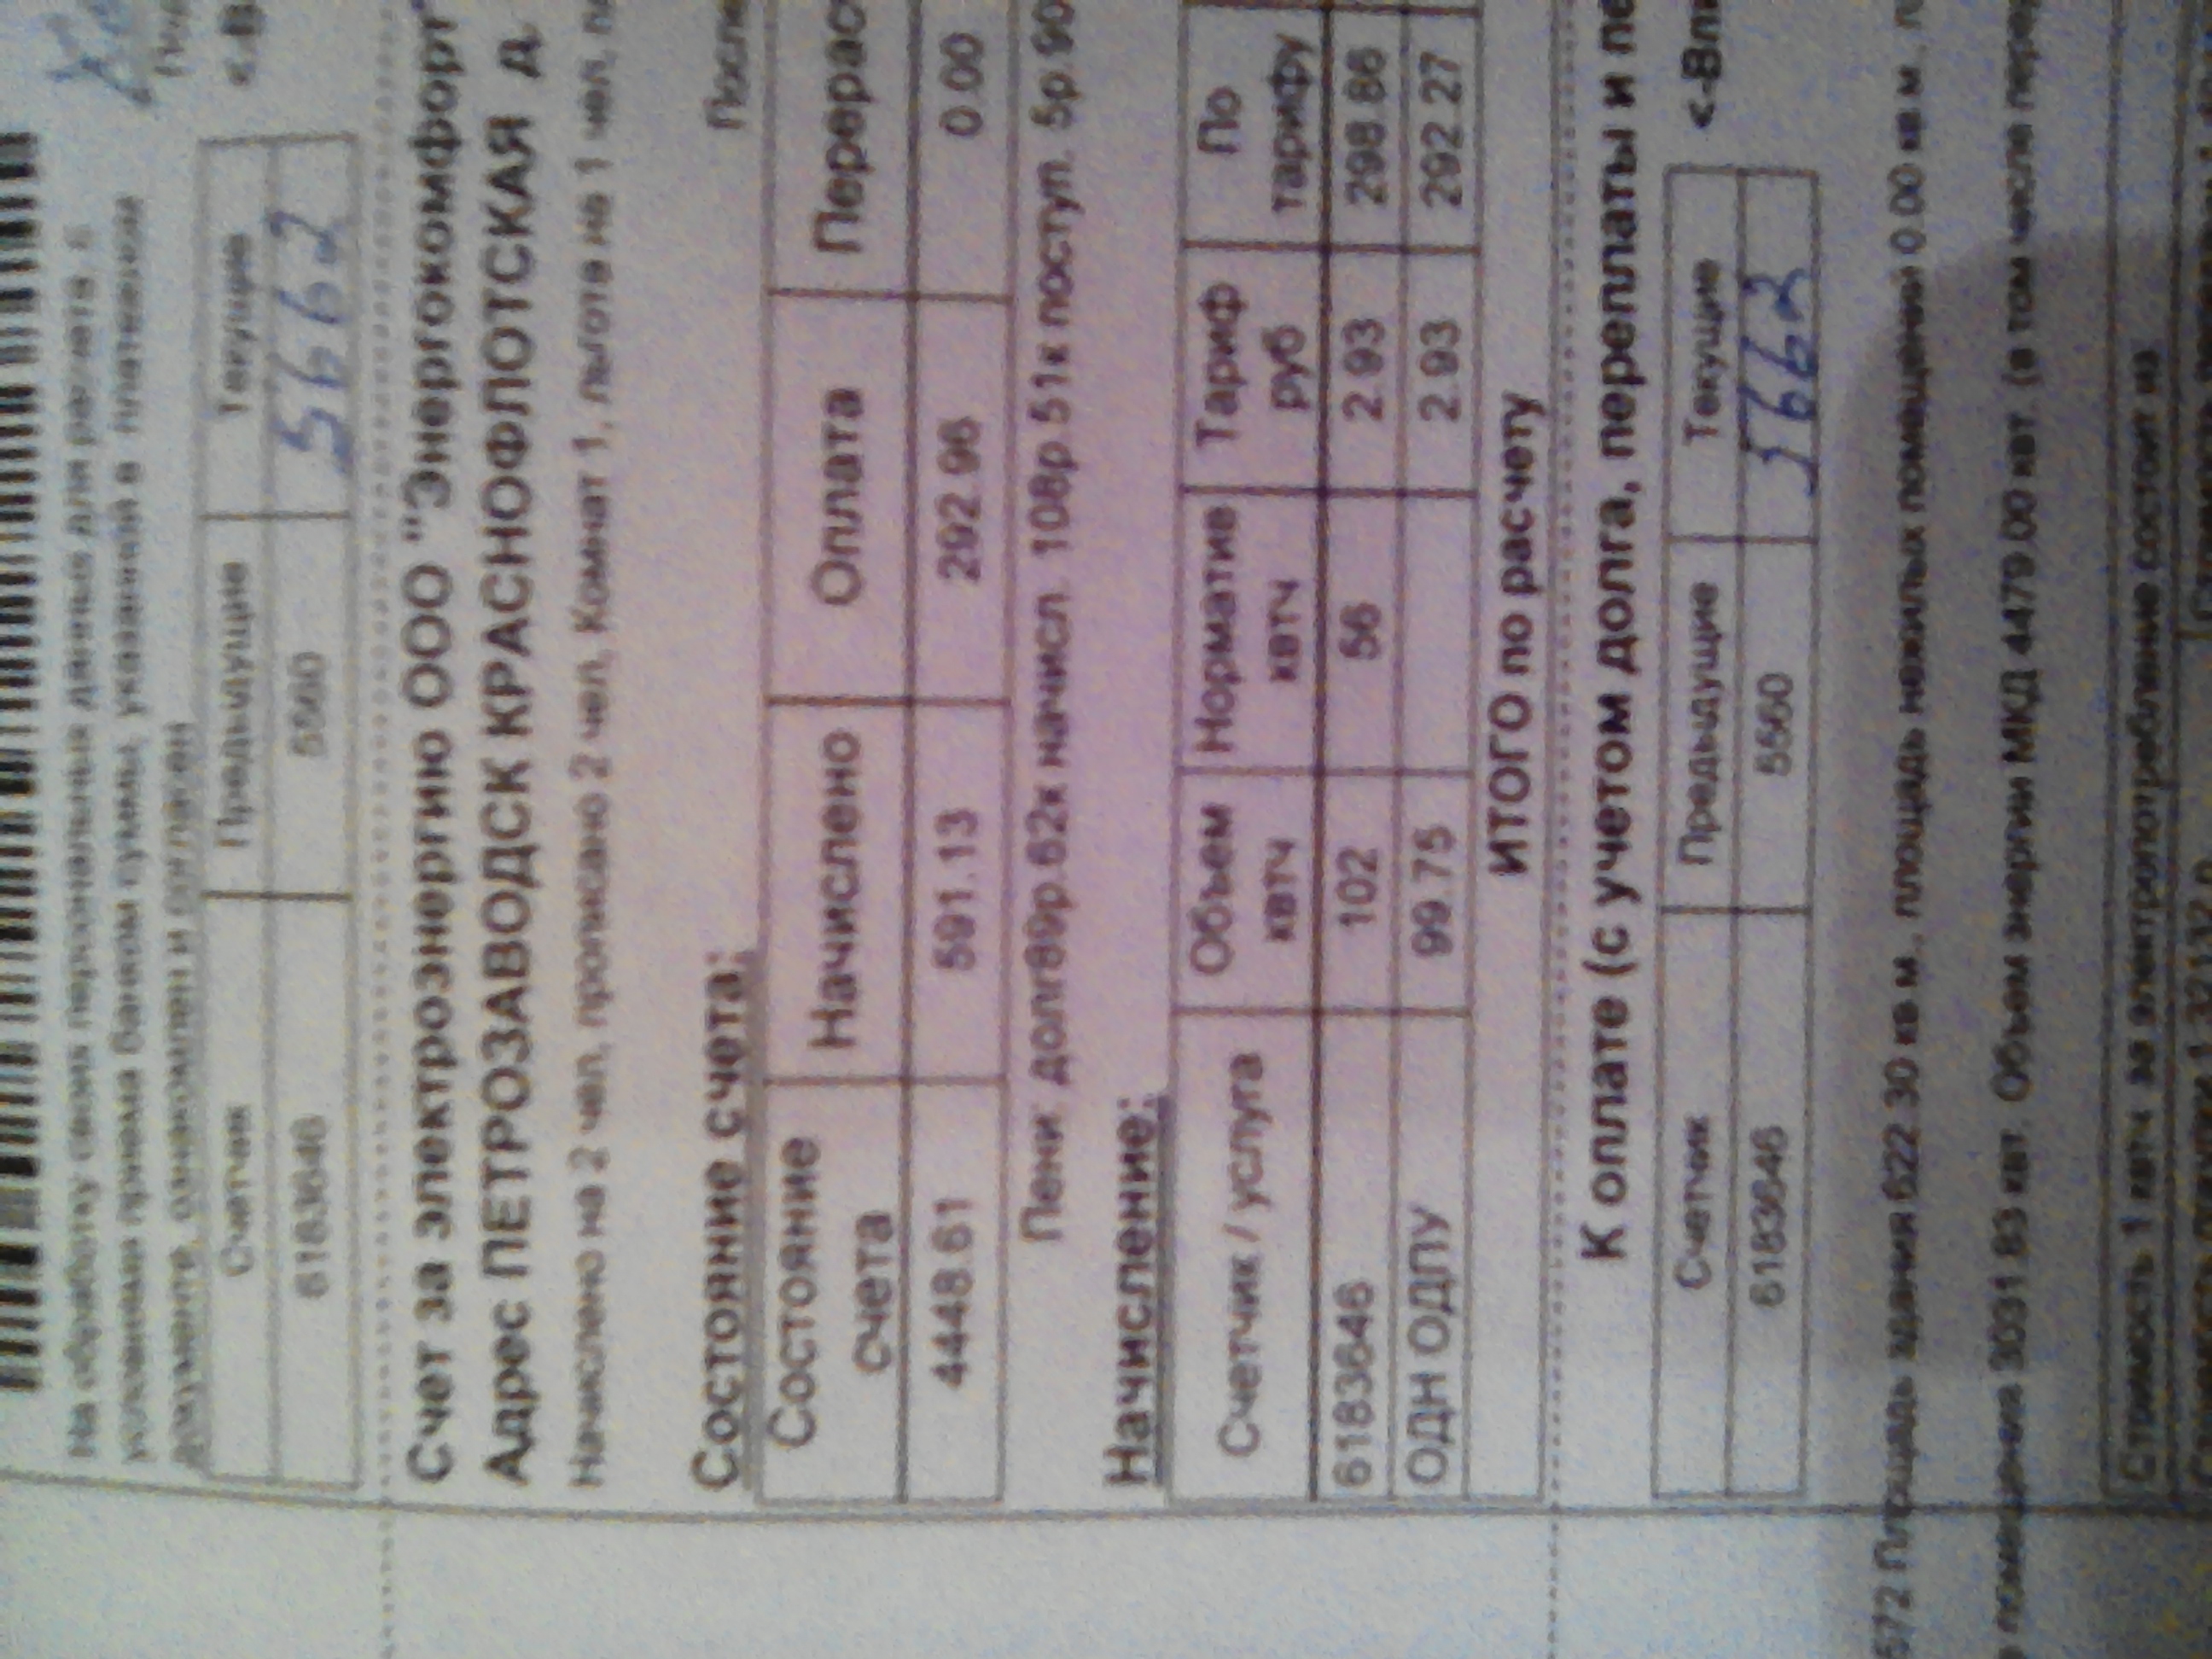 На обработку своих персональных данных для расчета с
условиями приема банком суммы, указанной в платежном
документе, ознакомлен и согласен
Счетчик Предыдущие Текущие
6183646 5560 5662
Счет за электроэнергию ООО "Энергокомфорт"
Адрес ПЕТРОЗАВОДСК КРАСНОФЛОТСКАЯ д.
Начислено на 2 чел, прописано 2 чел, Комнат 1, льгота на 1 чел,
После
Состояние счета:
Состояние счета Начислено Оплата Перерас
4448.61 591.13 292.96 0.00
Пени: долг89р.62к начисл. 108р.51к поступ. 5р.90
Начисление:
Счетчик / услуга Объем квтч Норматив квтч Тариф руб По тарифу
6183646 102 56 2.93 298.86
ОДН ОДПУ 99.75 2.93 292.27
ИТОГО по расчету
К оплате (с учетом долга, переплаты и пе
Счетчик Предыдущие Текущие <-Впи
6183646 5560 5662
572 Площадь здания 622.30 кв.м., площадь нежилых помещений 0.00 кв.м.,
помещения 3031.83 квт. Объем энергии МКД 4479.00 квт. (в том числе пере
Стоимость 1 квтч за электропотребление состоит из